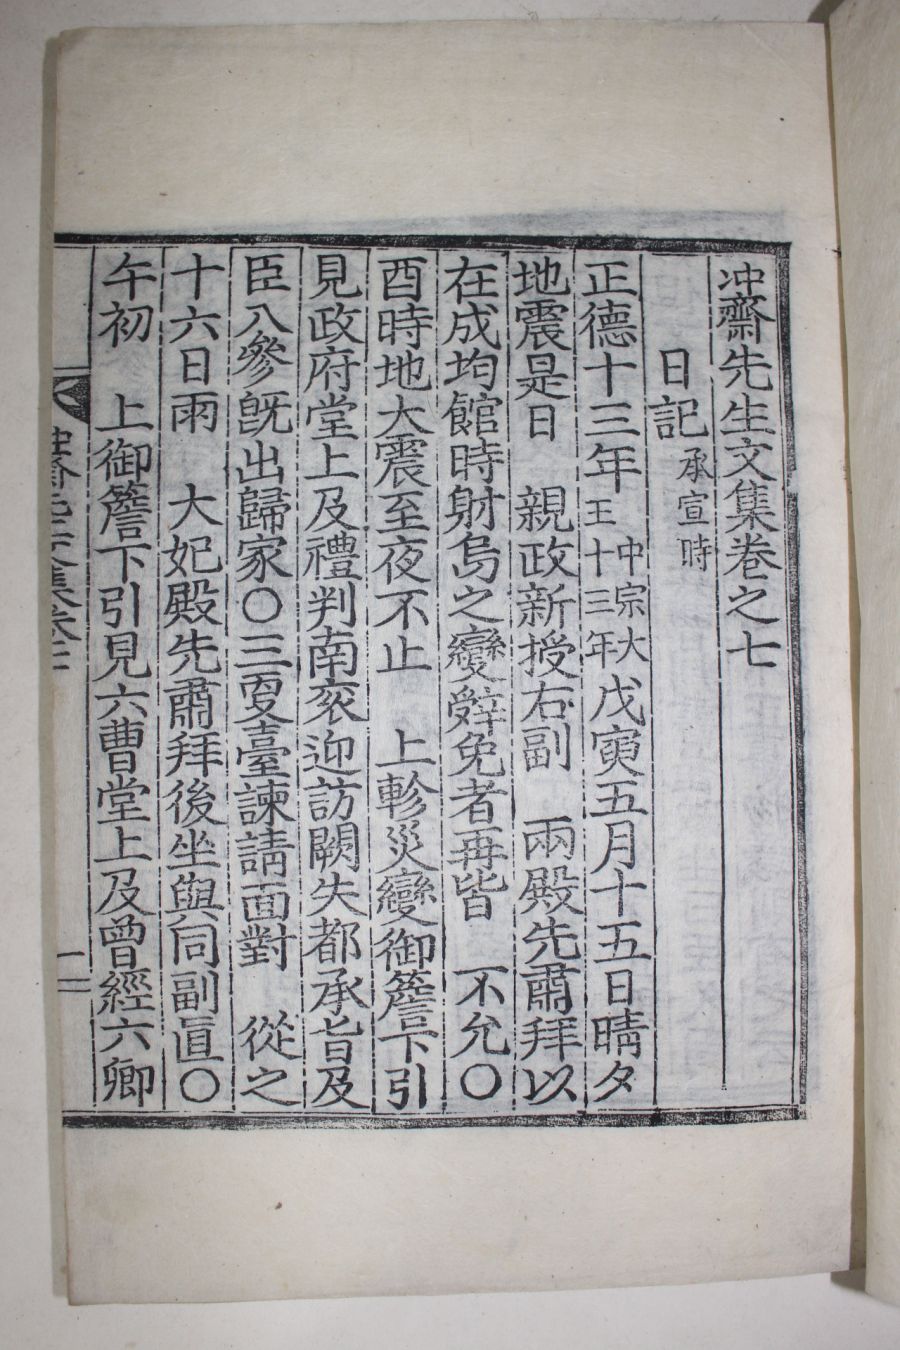 冲齋先生文集卷之七
日記 承宣時
正德十三年 中宗大王十三年 戊寅五月十五日晴夕
地震是日 親政新授右副 兩殿先肅拜以
在成均館時射烏之變辭免者再皆 不允〇
酉時地大震至夜不止 上軫災變御簷下引
見政府堂上及禮判南衮迎訪闕失都承旨及
臣入參旣出歸家〇三更臺諫請面對 從之
十六日雨 大妃殿先肅拜後坐與同副直〇
午初 上御簷下引見六曹堂上及曾經六卿
冲齋先生文集卷七